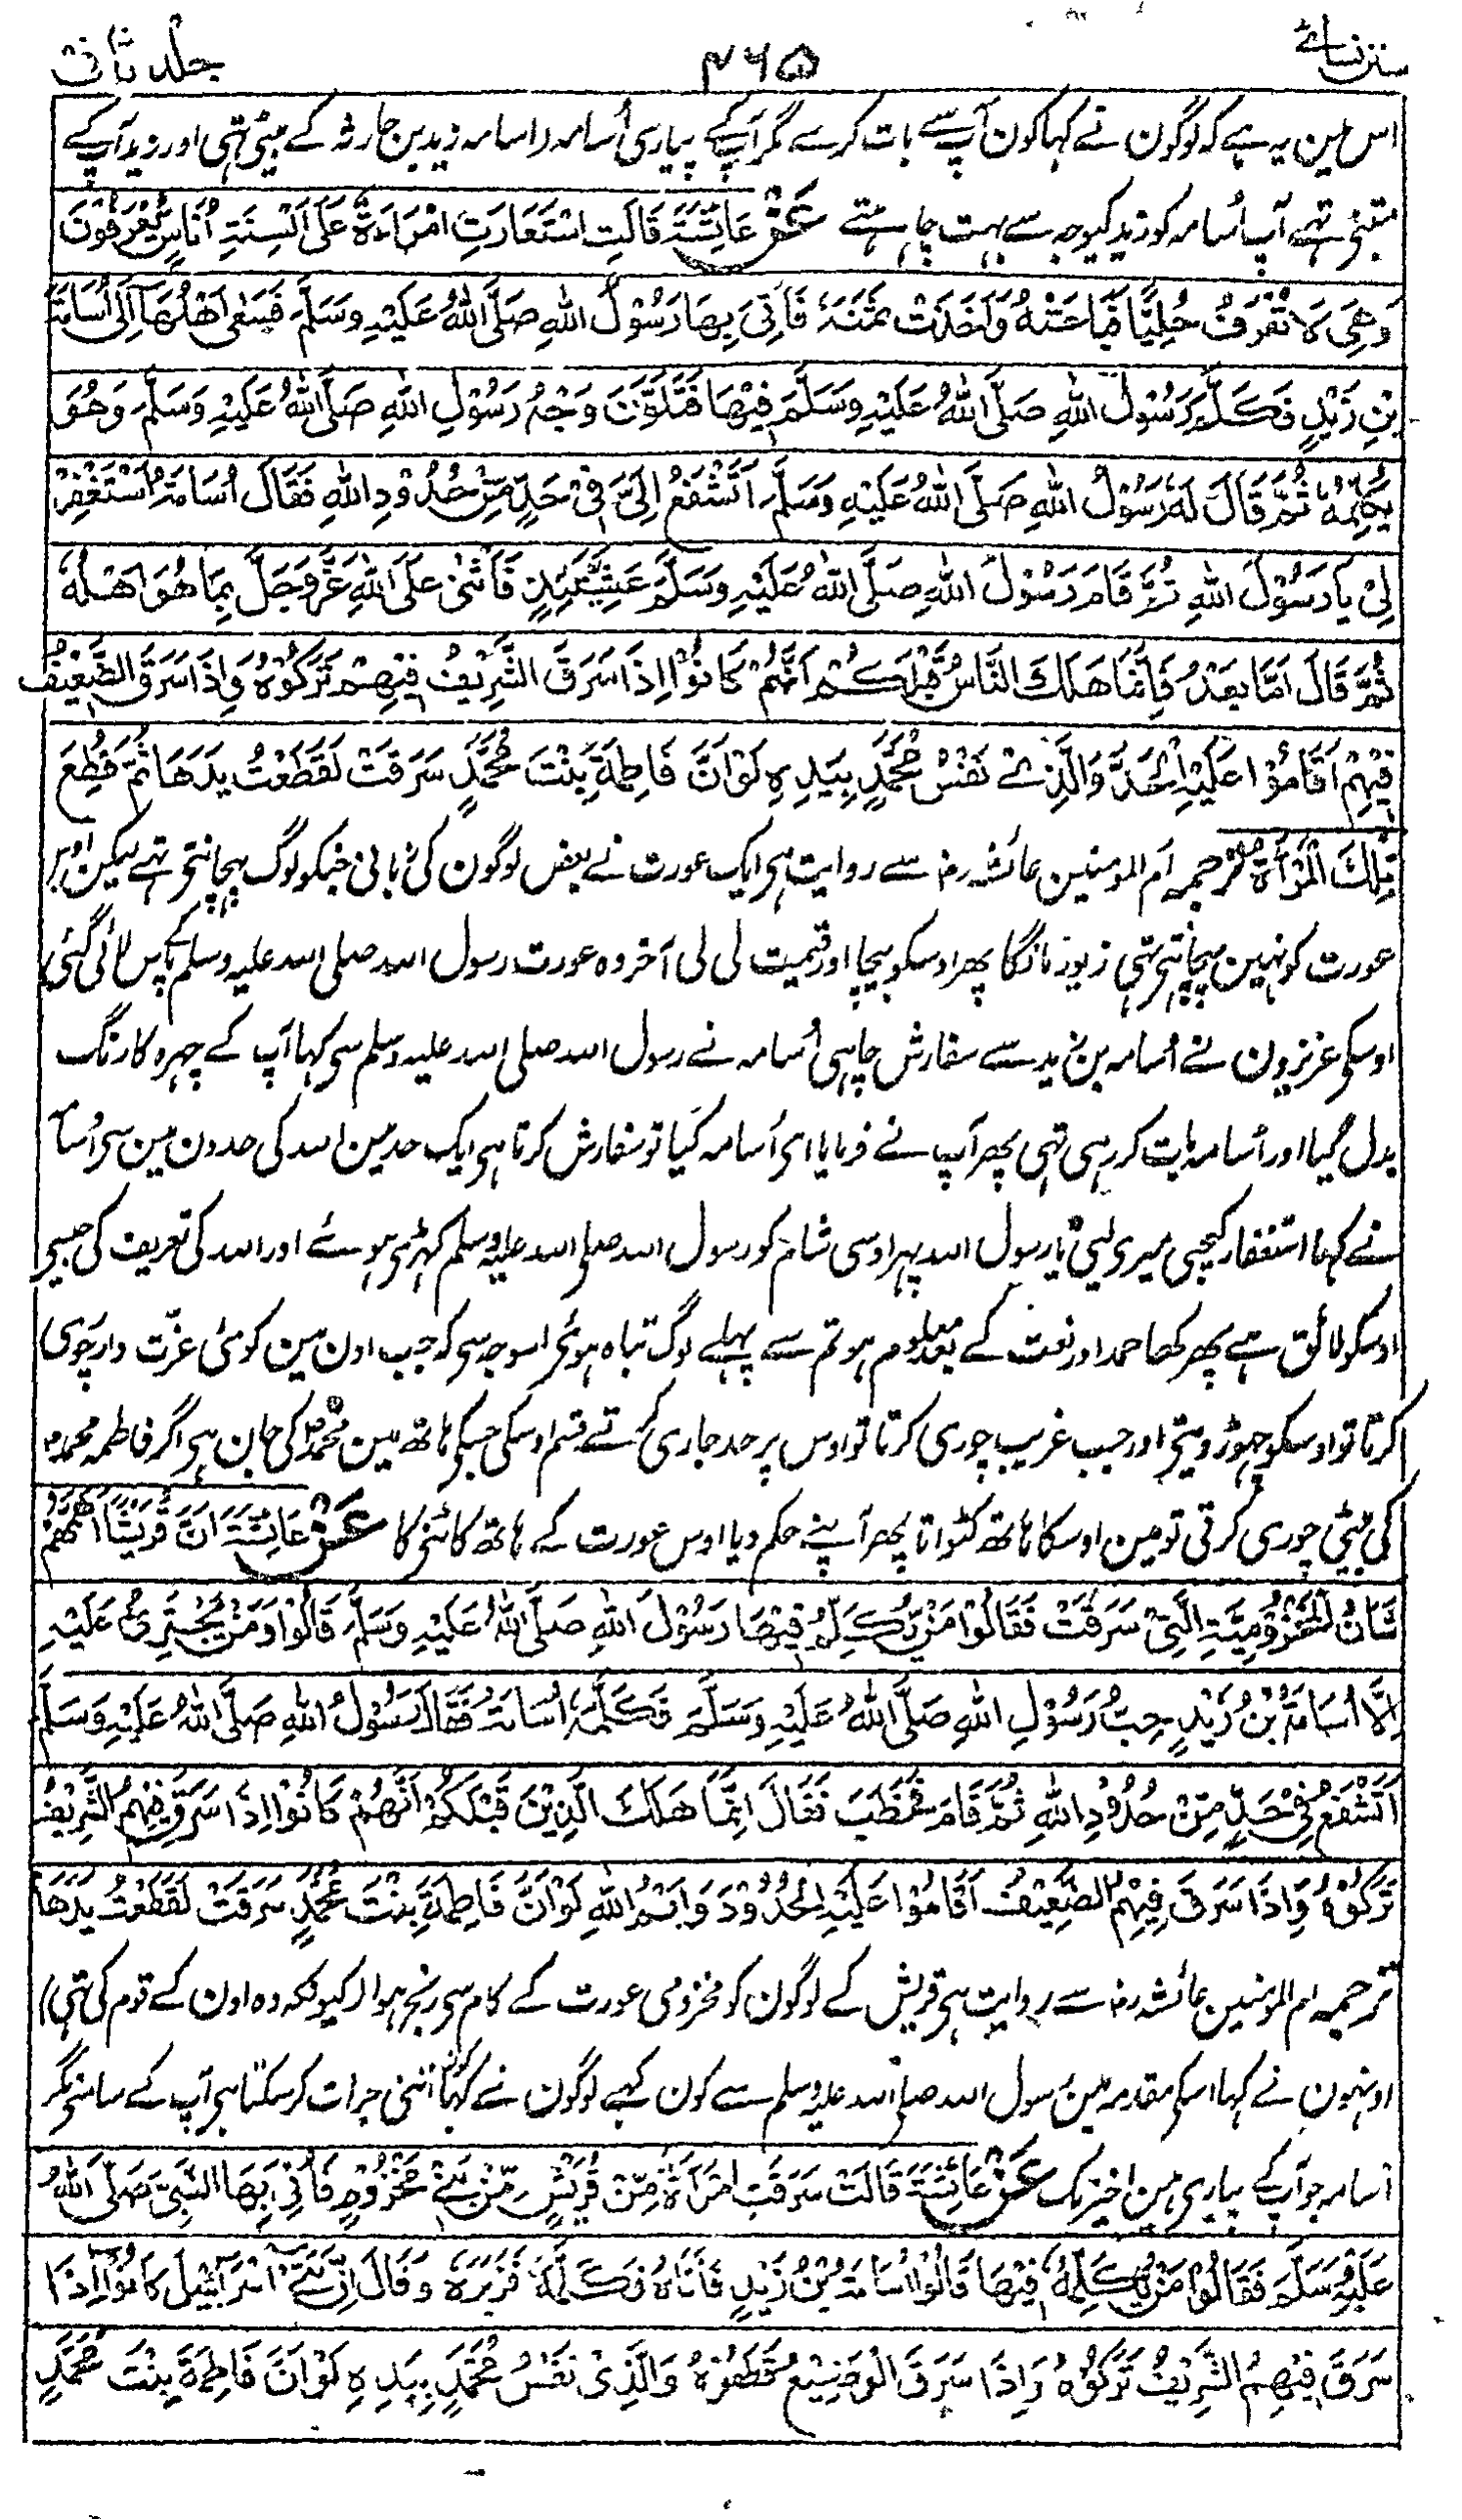 سنن نسائے ۴۶۵ جلد ثانی
اس مین یہ ہے کہ لوگون نے کہا کون آپ سے بات کرسے مگر آپکے پیاری اُسامہ (اسامہ زید بن حارثہ کے بیٹی تہی اور زید آپ کے
متبنی تہے آپ اُسامہ کو زید کیوجہ سے بہت چاہتے عَنْ عَائِشَةَ قَالَتِ اسْتَعَارَتِ امْرَاَةٌ عَلٰى اَلْسِنَةِ اُنَاسٍ يُعْرَفُوْنَ
وَهِيَ لَا تُعْرَفُ حُلِيًّا فَبَاعَتْهُ وَاَخَذَتْ ثَمَنَهٗ فَاُتِيَ بِهَا رَسُوْلُ اللهِ صَلَّى اللهُ عَلَيْهِ وَسَلَّمَ فَسَعٰى اَهْلُهَا اِلٰى اُسَامَةَ
بْنِ زَيْدٍ فَكَلَّمَ رَسُوْلَ اللهِ صَلَّى اللهُ عَلَيْهِ وَسَلَّمَ فِيْهَا فَتَلَوَّنَ وَجْهُ رَسُوْلِ اللهِ صَلَّى اللهُ عَلَيْهِ وَسَلَّمَ وَهُوَ
يُكَلِّمُهٗ ثُمَّ قَالَ لَهٗ رَسُوْلُ اللهِ صَلَّى اللهُ عَلَيْهِ وَسَلَّمَ اَتَشْفَعُ اِلَيَّ فِيْ حَدٍّ مِّنْ حُدُوْدِ اللهِ فَقَالَ اُسَامَةُ اسْتَغْفِرْ
لِيْ يَا رَسُوْلَ اللهِ ثُمَّ قَامَ رَسُوْلُ اللهِ صَلَّى اللهُ عَلَيْهِ وَسَلَّمَ عَشِيَّتَئِذٍ فَاَثْنٰى عَلَى اللهِ عَزَّ وَجَلَّ بِمَا هُوَ اَهْلُهٗ
ثُمَّ قَالَ اَمَّا بَعْدُ فَاِنَّمَا هَلَكَ النَّاسُ قَبْلَكُمْ اَنَّهُمْ كَانُوْا اِذَا سَرَقَ الشَّرِيْفُ فِيْهِمْ تَرَكُوْهُ وَاِذَا سَرَقَ الضَّعِيْفُ
فِيْهِمْ اَقَامُوْا عَلَيْهِ الْحَدَّ وَالَّذِيْ نَفْسُ مُحَمَّدٍ بِيَدِهٖ لَوْ اَنَّ فَاطِمَةَ بِنْتَ مُحَمَّدٍ سَرَقَتْ لَقَطَعْتُ يَدَهَا ثُمَّ قَطَعَ
تِلْكَ الْمَرْاَةَ ترجمہ ام المومنین عائشہ رض سے روایت ہی ایک عورت نے بعض لوگون کی زبانی جنکو لوگ پہچانتی تہے لیکن اوس
عورت کو نہین پہچانتی تہی زیور مانگا پھر اوسکو بیچا اور قیمت لی لی آخر وہ عورت رسول اللہ صلی اللہ علیہ وسلم کے پاس لائی گئی
اوسکی عزیزون نے اُسامہ بن زید سے سفارش چاہی اُسامہ نے رسول اللہ صلی اللہ علیہ وسلم سی کہا آپ کے چہرہ کا رنگ
بدل گیا اور اُسامہ بات کر رہی تہی پھر آپ نے فرمایا ای اُسامہ کیا تو سفارش کرتا ہی ایک حد مین اللہ کی حدون مین سی اُسامہ
نے کہا استغفار کیجیی میری لیی یا رسول اللہ پہر اوسی شام کو رسول اللہ صلی اللہ علیہ وسلم کہڑی ہوئے اور اللہ کی تعریف کی جیسی
اوسکو لائق ہے پھر کہا حمد اور نعت کے بعد معلوم ہو تم سے پہلے لوگ تباہ ہوئی اسوجہ سی کہ جب اون مین کوئی عزّت دار چوری
کرتا تو اوسکو چہوڑ دیتی اور جب غریب چوری کرتا تو اوس پر حد جاری کرتے قسم اوسکی جسکی ہاتھ مین محمد کی جان ہی اگر فاطمہ محمد
کی بیٹی چوری کرتی تو مین اوسکا ہاتھ کٹواتا پھر آپنے حکم دیا اوس عورت کے ہاتھ کاٹنی کا عَنْ عَائِشَةَ اَنَّ قُرَيْشًا اَهَمَّهُمْ
شَاْنُ الْمَخْزُوْمِيَّةِ الَّتِيْ سَرَقَتْ فَقَالُوْا مَنْ يُّكَلِّمُ فِيْهَا رَسُوْلَ اللهِ صَلَّى اللهُ عَلَيْهِ وَسَلَّمَ قَالُوْا وَمَنْ يَّجْتَرِئُ عَلَيْهِ
اِلَّا اُسَامَةُ بْنُ زَيْدٍ حِبُّ رَسُوْلِ اللهِ صَلَّى اللهُ عَلَيْهِ وَسَلَّمَ فَكَلَّمَهٗ اُسَامَةُ فَقَالَ رَسُوْلُ اللهِ صَلَّى اللهُ عَلَيْهِ وَسَلَّمَ
اَتَشْفَعُ فِيْ حَدٍّ مِّنْ حُدُوْدِ اللهِ ثُمَّ قَامَ فَخَطَبَ فَقَالَ اِنَّمَا هَلَكَ الَّذِيْنَ قَبْلَكُمْ اَنَّهُمْ كَانُوْا اِذَا سَرَقَ فِيْهِمُ الشَّرِيْفُ
تَرَكُوْهُ وَاِذَا سَرَقَ فِيْهِمُ الضَّعِيْفُ اَقَامُوْا عَلَيْهِ الْحُدُوْدَ وَايْمُ اللهِ لَوْ اَنَّ فَاطِمَةَ بِنْتَ مُحَمَّدٍ سَرَقَتْ لَقَطَعْتُ يَدَهَا
ترجمہ ام المومنین عائشہ رض سے روایت ہی قریش کے لوگون کو مخزومی عورت کے کام سی رنج ہوا (کیونکہ وہ اون کے قوم کی تہی)
اونہون نے کہا اسکی مقدمہ مین رسول اللہ صلی اللہ علیہ وسلم سے کون کہے لوگون نے کہا اتنی جرات کر سکتا ہی آپ کے سامنی مگر
اسامہ جو آپکے پیاری ہین اخیر تک عَنْ عَائِشَةَ قَالَتْ سَرَقَتِ امْرَاَةٌ مِّنْ قُرَيْشٍ مِّنْ بَنِيْ مَخْزُوْمٍ فَاُتِيَ بِهَا النَّبِيُّ صَلَّى اللهُ
عَلَيْهِ وَسَلَّمَ فَقَالُوْا مَنْ يُّكَلِّمُهٗ فِيْهَا قَالُوْا اُسَامَةُ بْنُ زَيْدٍ فَاَتَاهُ فَكَلَّمَهٗ فَزَبَرَهٗ وَقَالَ اِنَّ بَنِيْ اِسْرَائِيْلَ كَانُوْا اِذَا
سَرَقَ فِيْهِمُ الشَّرِيْفُ تَرَكُوْهُ وَاِذَا سَرَقَ الْوَضِيْعُ قَطَعُوْهُ وَالَّذِيْ نَفْسُ مُحَمَّدٍ بِيَدِهٖ لَوْ اَنَّ فَاطِمَةَ بِنْتَ مُحَمَّدٍ